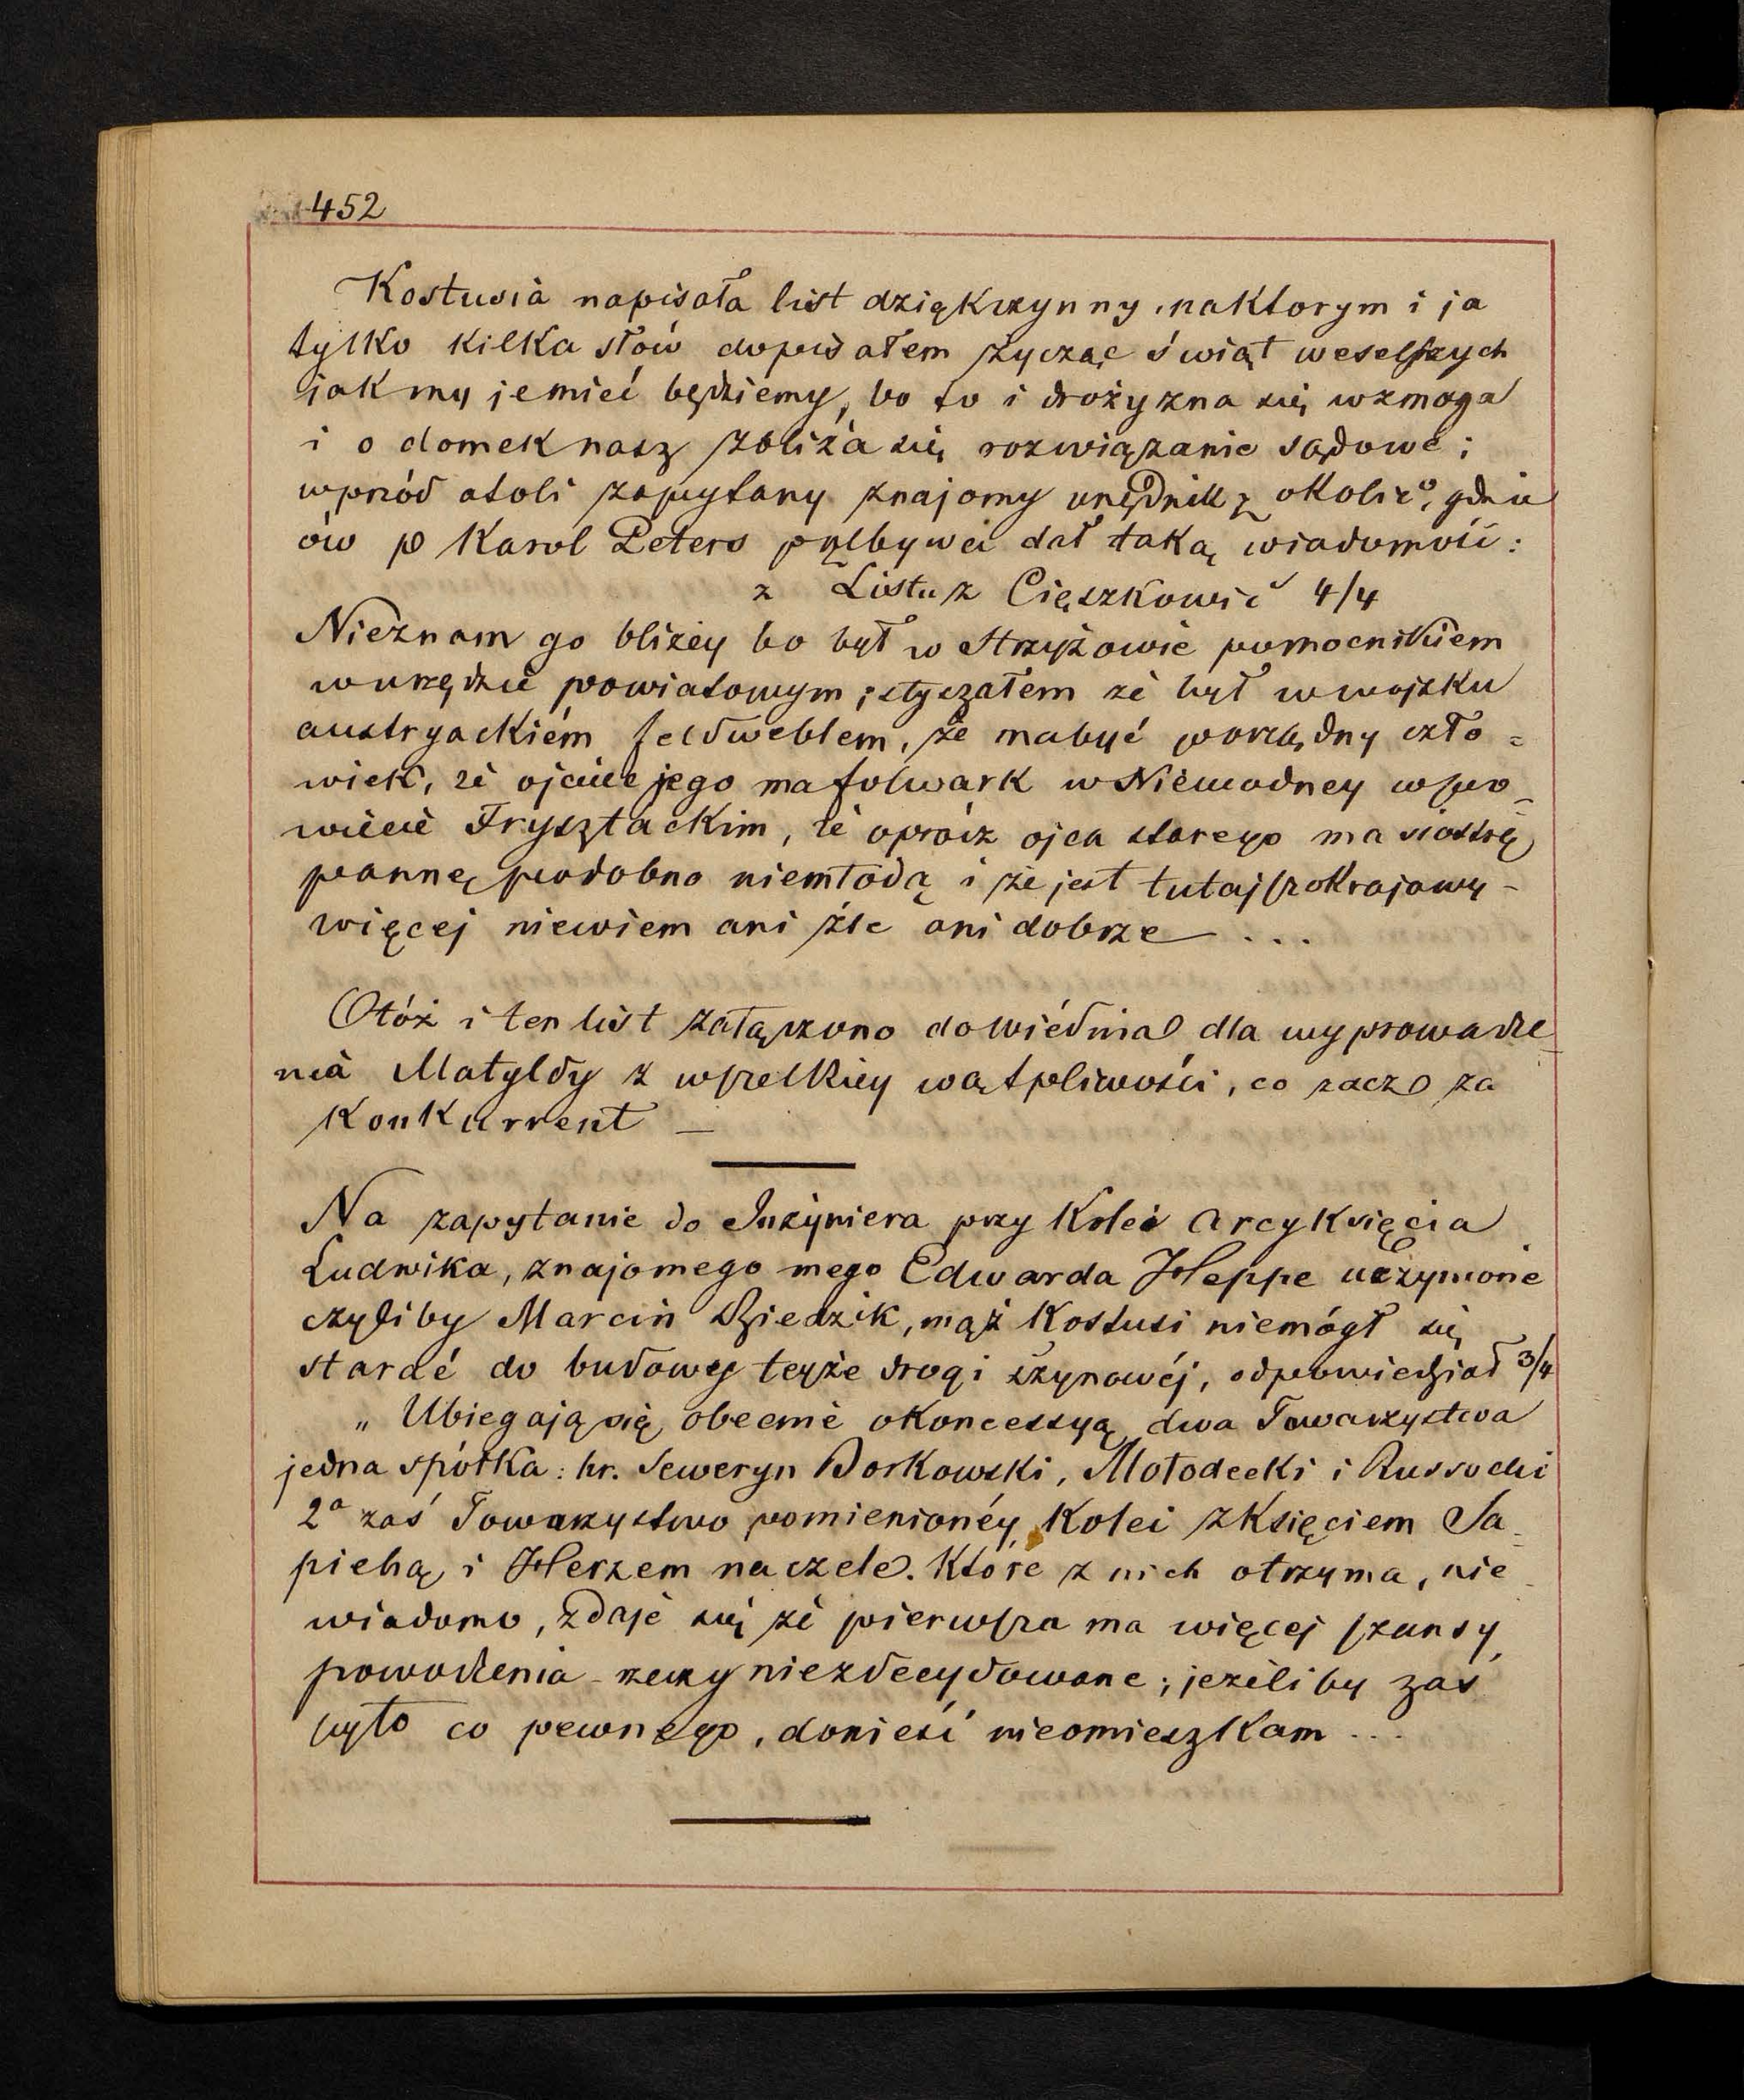 452
Kostusia napisała list dziękczynny, na ktorym i ja
tylko kilka słów dopisałem życząc świąt weselszych
jak my je mieć będziemy, bo to i drożyzna się wzmaga
i o domek nasz zbliża się rozwiązanie sądowe;
wprzód atoli zapytany znajomy urzędnik z okolic, gdzie
ów p Karol Peters przebywa dał taką wiadomość:
z Listu z Ciężkowic 4/4
Nieznam go bliżey bo był w Strzyżowie pomocnikiem
w urzędzie powiatowym; słyszałem że był w wojsku
austryackiém feldweblem, że ma być porządny czło=
wiek, że ojciec jego ma folwark w Niewodney w po_
wiecie Frysztackim, że oprócz ojca starego ma siostrę
pannę podobno niemłodą i że jest tutaj szokrajowy –
więcej niewiem ani źle ani dobrze ...
Otóż i ten list załączono do Wiédnia dla wyprowadze_
nia Matyldy z wszelkiey wątpliwości, co zacz za
Konkurrent —
Na zapytanie do Inżyniera przy Kolei Arcyksięcia
Ludwika, znajomego mego Edwarda Heppe uczynione
czyliby Marcin Dziedzik, mąż Kostusi niemógł się
starać do budowy teyże drogi szynowéj, odpowiedział 3/4
„ Ubiegają się obecnie o koncessyą dwa Towarzystwa
jedna spółka: hr. Seweryn Borkowski, Mołodecki i Russocki
2a zaś Towarzystwo pomienionéy Kolei z Księciem Sa_
piehą i Herzem na czele. Które z nich otrzyma, nie_
wiadomo, zdaje się że pierwsza ma więcej szansy
powodzenia – rzeczy niezdecydowane; jeżeliby zaś
było co pewnego, donieść nieomieszkam ...